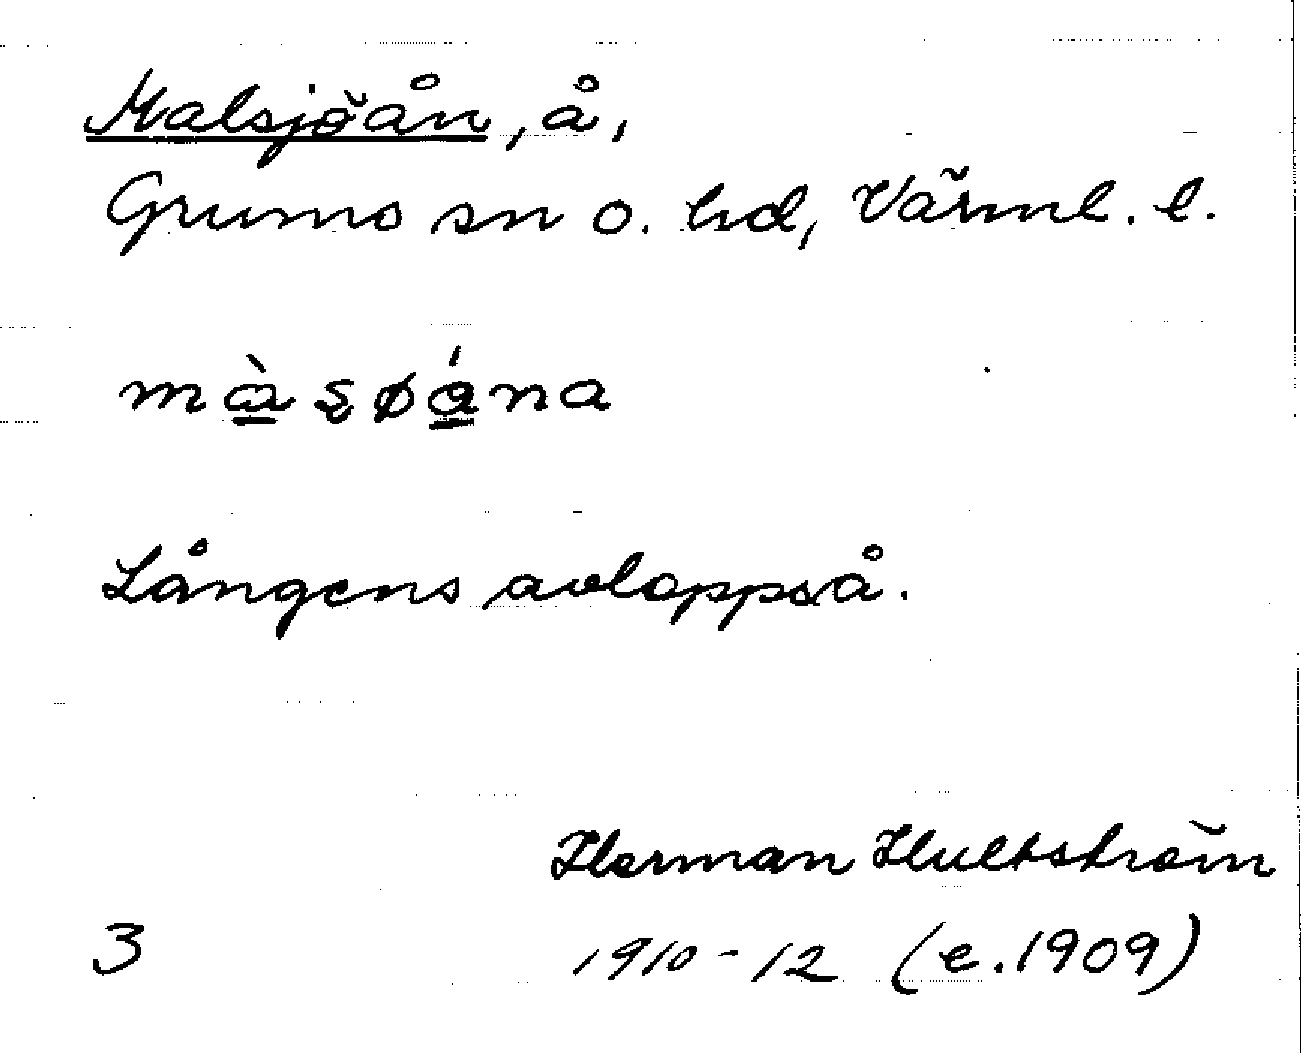 Malsjöån, å,
Grums sn o. hd, Värml. l.
màʂøána
Långens avloppså.
Herman Hultström
3 1910-12 (e.1909)